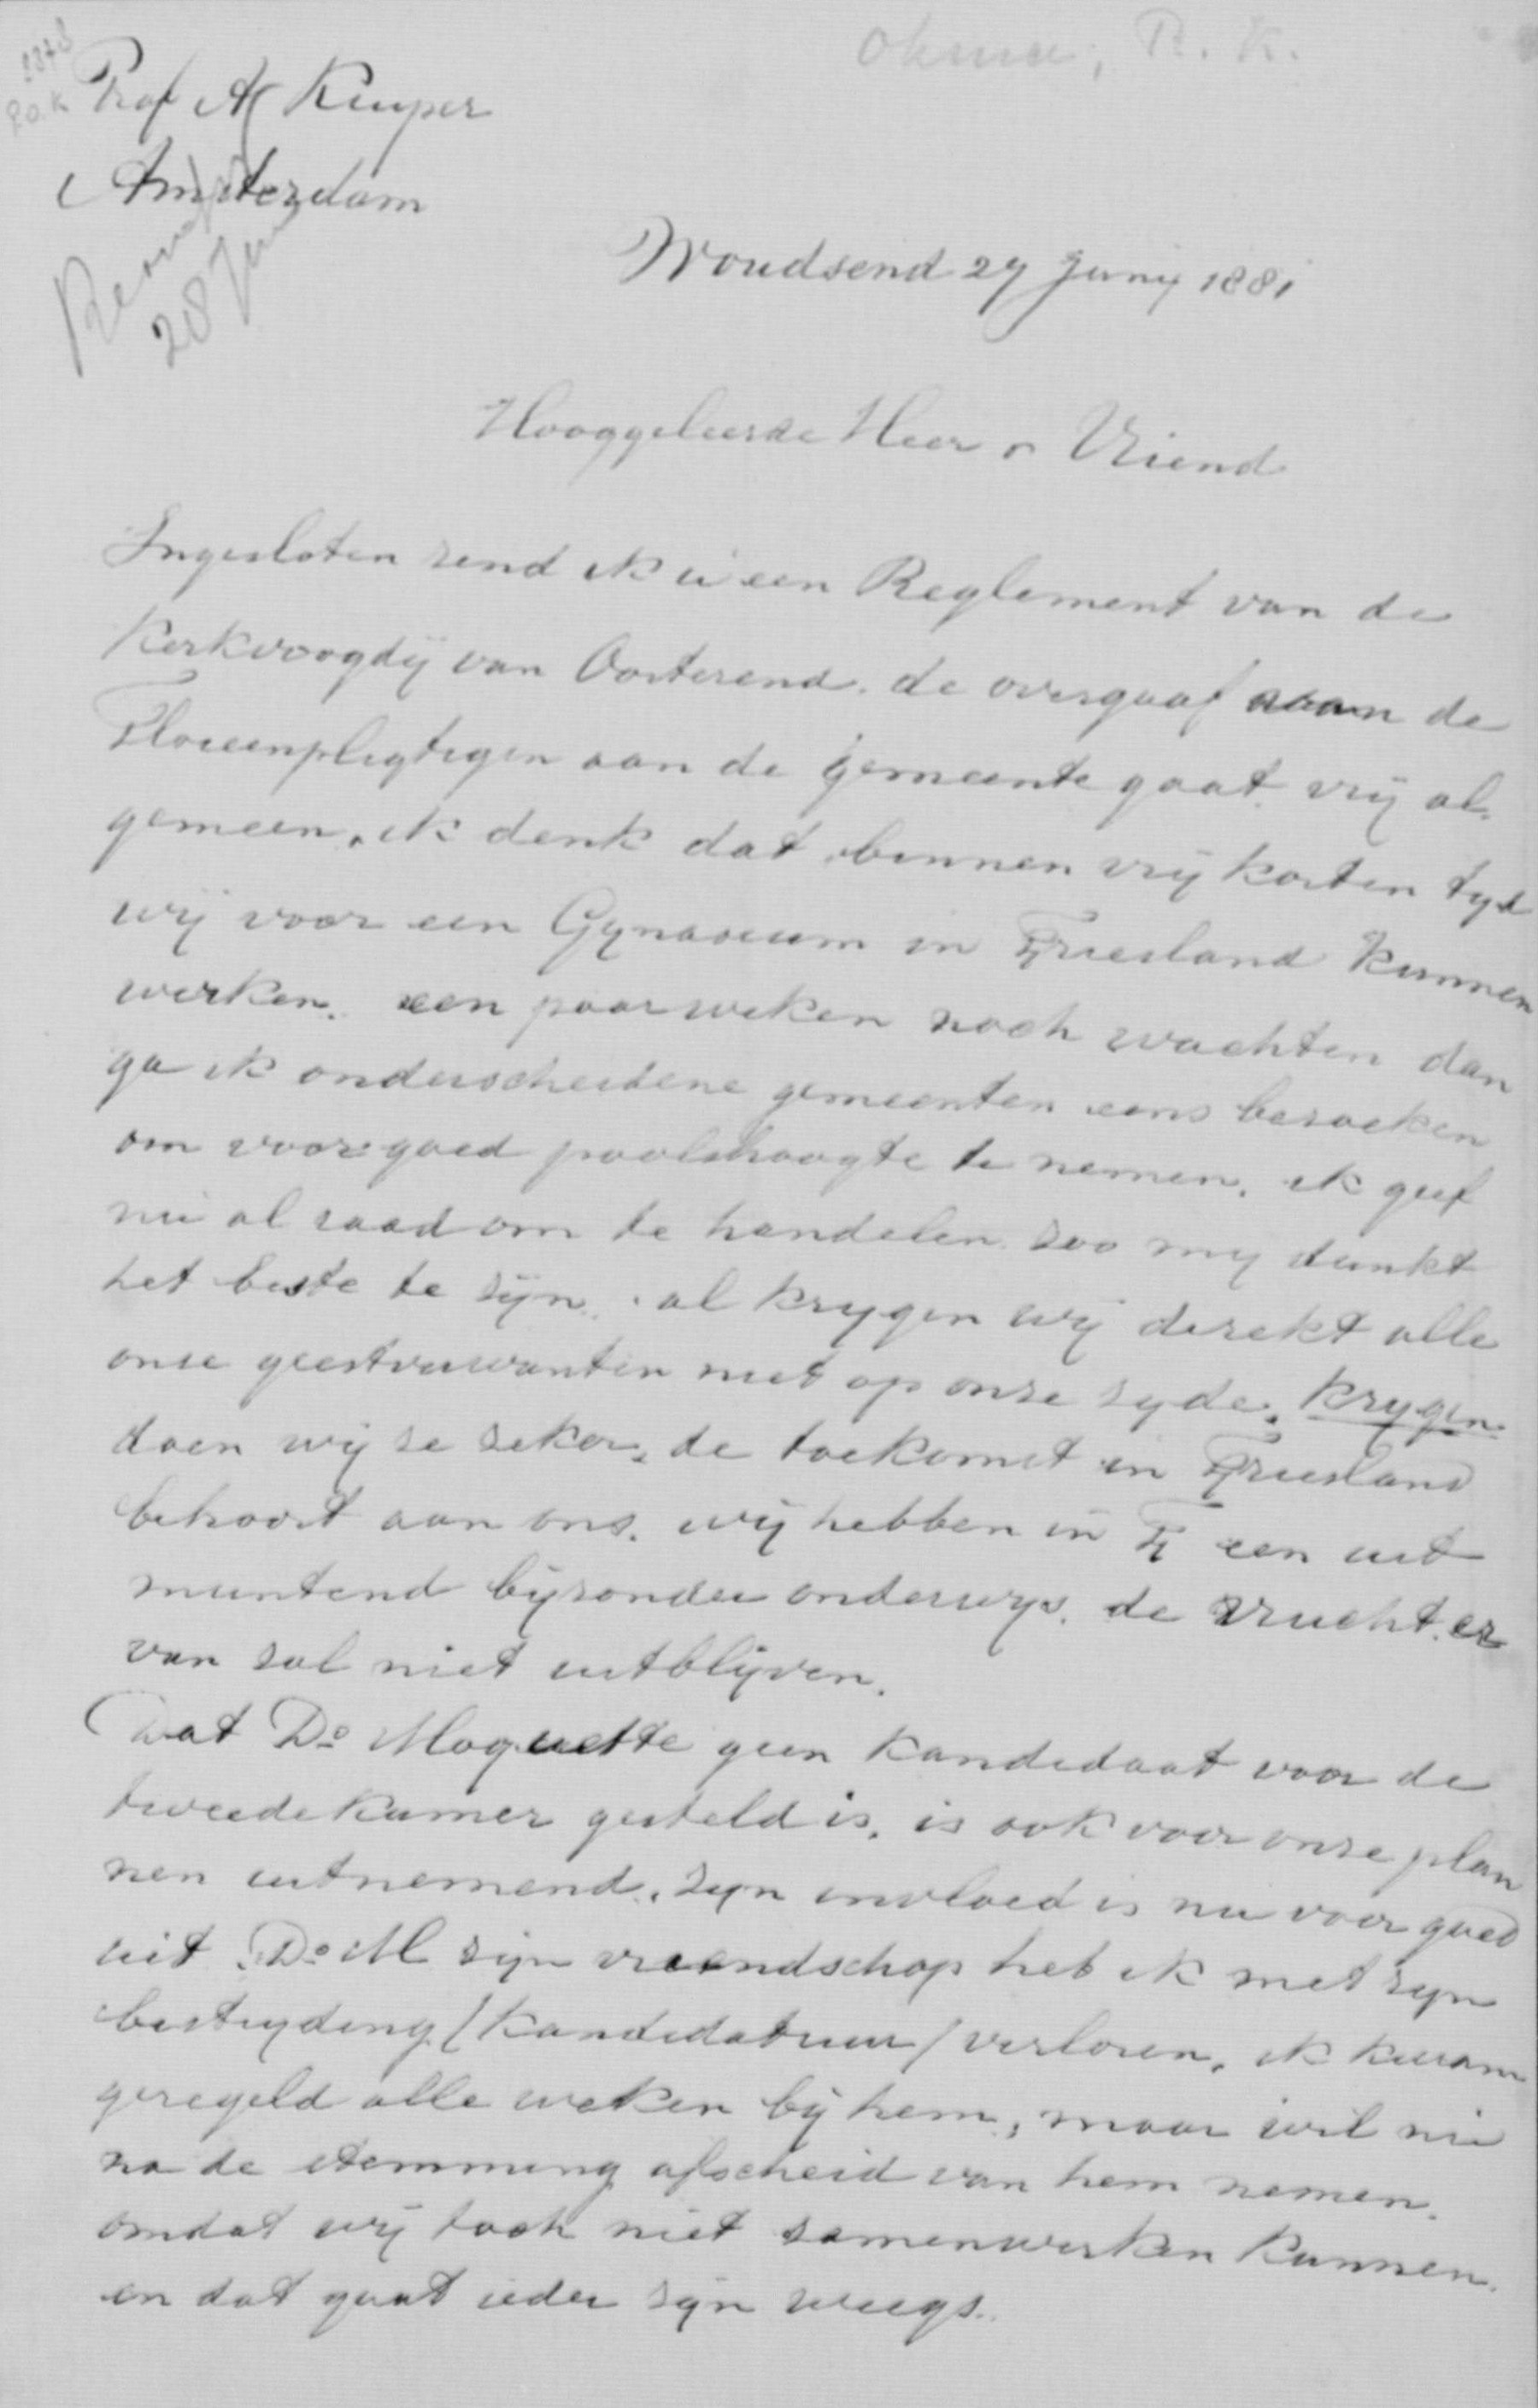 Okma, R. K.
Prof A Kuyper
Amsterdam
28 Jun
Woudsend 27 Junij 1881
Hooggeleerde Heer n Vriend
Ingesloten zend ik u een Reglement van de
Kerkvoogdij van Oosterend. de overgaaf van de
Floreenpligtigen aan de gemeente gaat vrij al.
gemeen, ik denk dat binnen vrij korten tyd
wij voor een Gynasium in Friesland kunnen
werken. een paar weken noch wachten dan
ga ik onderscheidene gemeenten eens bezoeken
om voorgoed poolshoogte te nemen. ik geef
nu al raad om te handelen zoo my dunkt
het beste te zijn. al krygen wij direkt alle
onze geestverwanten niet op onze zyde, krygen
doen wij ze zeker, de toekomst in Friesland
behoort aan ons. wij hebben in F een uit
muntend bijzonder onderwys. de vrucht er
van zal niet uitblijven.
Dat Ds Moquette geen kandidaat voor de
tweede kamer gesteld is, is ook voor onze plan
nen uitnemend, zyn invloed is nu voor goed
uit. Ds M zijn vriendschap heb ik met zyn
bestryding / kandidatuur / verloren, ik kwam
geregeld alle weken bij hem, maar wil nu
na de stemming afscheid van hem nemen.
omdat wij toch niet samenwerken kunnen.
en dat gaat ieder zijn weegs.